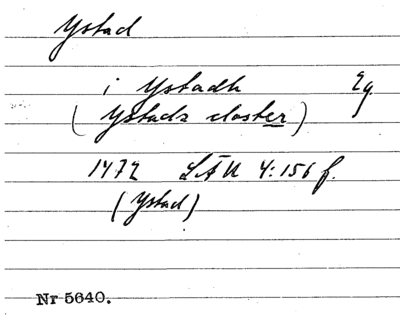 Ystad
i Ystadh Eg.
(Ystadz closter)
1472 LÄU 4:156 f.
(Ystad)
Nr 5640.